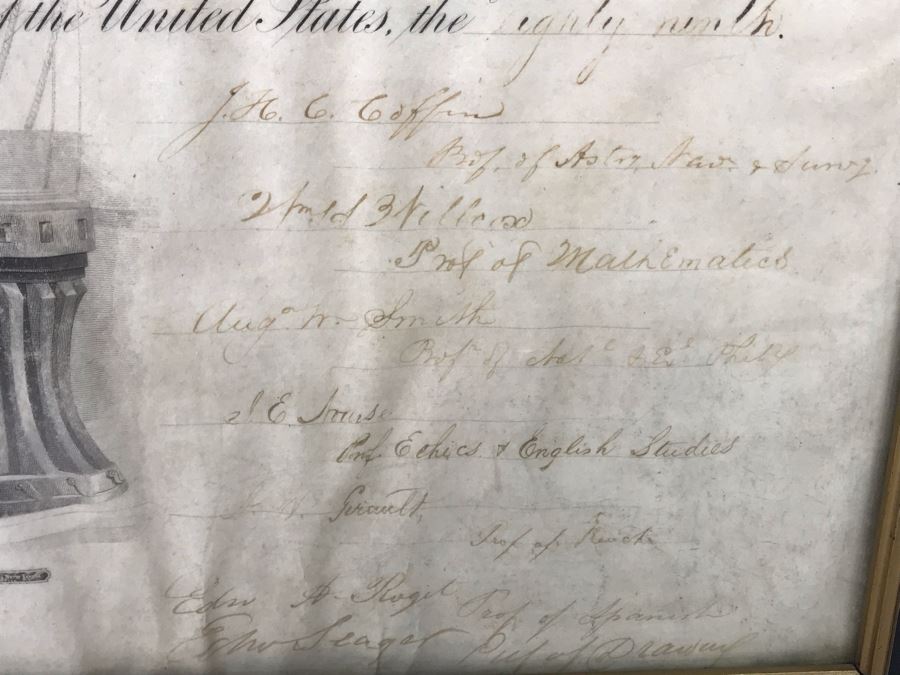 the United States, the eighty ninth.
J. H. C. Coffin
Prof. of Astr., Nav. & Surv'g.
Wm. d Willcox
Prof of Mathematics
Aug. W. Smith
Prof. of Nat. & Phil
J E Nourse
Prof. Ethics & English Studies
Girault,
Prof of French
Edw A. Roget Prof of Spanish
Edw Seager Prof of Drawing